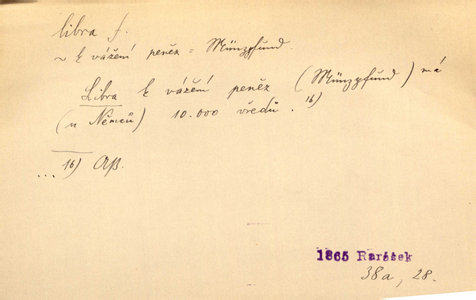 libra f.
~ k vážení peněz = Münzpfund.
Libra k vážení peněz (Münzpfund) má
(u Němců) 10.000 vředů.¹⁶⁾
... 16) Aß.
1865 Rarášek
38a, 28.